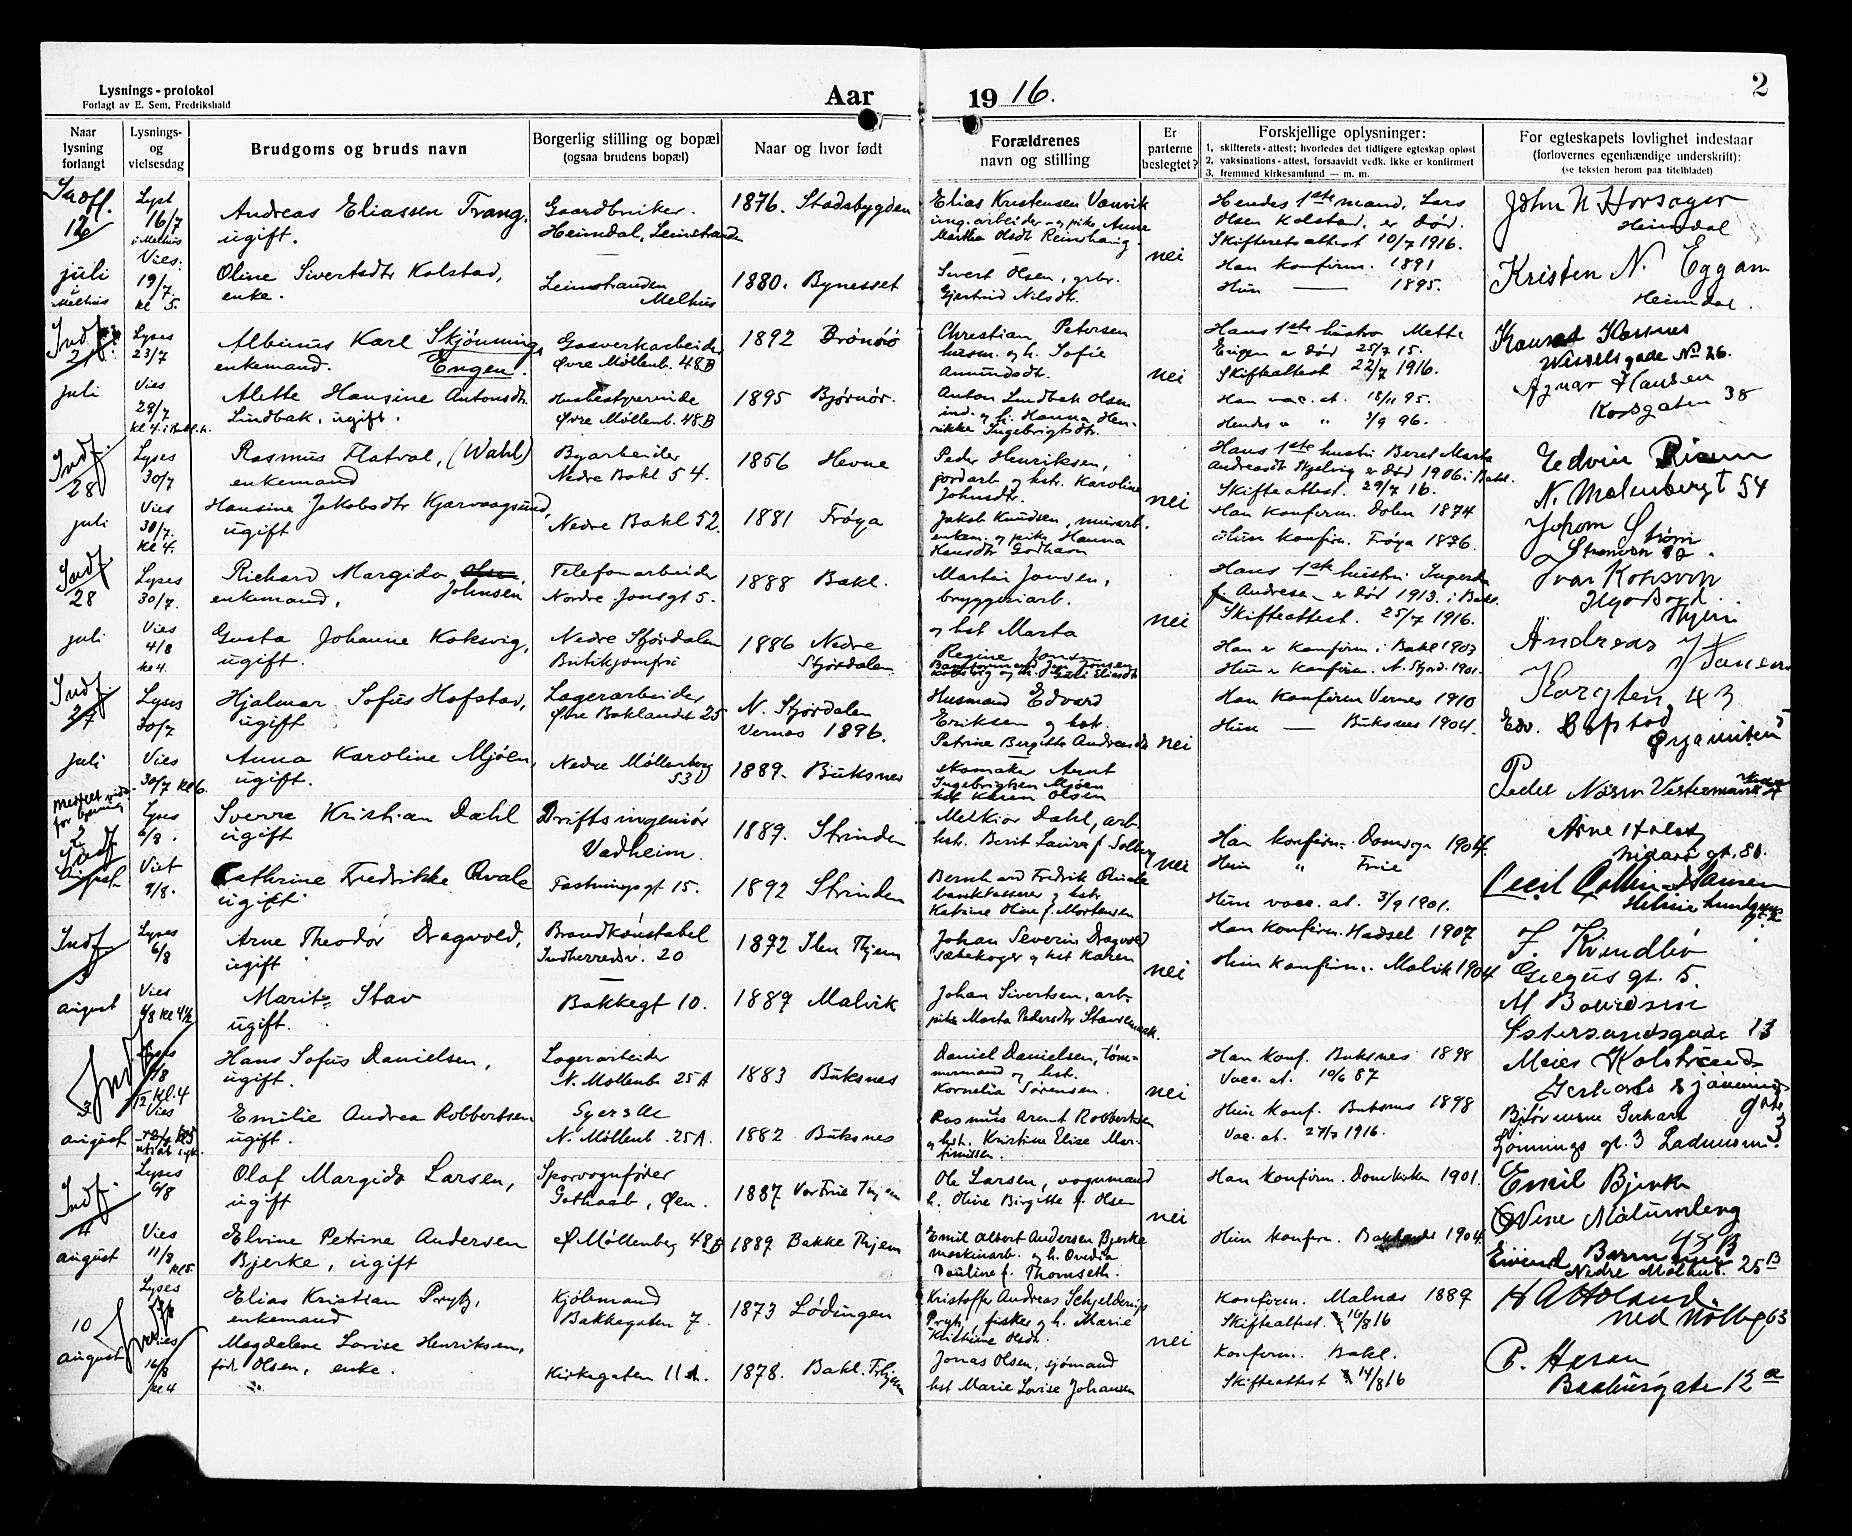 Lysnings - protokol
Forlagt av E. Sem, Fredrikshald
Aar 1916.
2
Naar lysning forlangt
Lysnings- og vielsesdag
Brudgoms og bruds navn
Borgerlig stilling og bopæl (ogsaa brudens bopæl)
Naar og hvor født
Forældrenes navn og stilling
Er parterne beslegtet?
Forskjellige oplysninger:
1. skifterets-attest; hvorledes det tidligere egteskap opløst
2. vaksinations-attest, forsaavidt vedk. ikke er konfirmert
3. fremmed kirkesamfund — m. m.
For egteskapets lovlighet indestaar
(forlovernes egenhændige underskrift):
(se teksten herom paa titelbladet)
12 juli i Melhus
Lyst 16/7 i Melhus
Vies: 19/7 kl 5.
Andreas Eliassen Trang,
ugift.
Gaardbruker.
Heimdal, Leinstranden
1876. Stadsbygden
Elias Kristensen Vanvik
ung.arbeider og pike Anne
Martha Olsdtr Reinshaug.
nei
Hendes 1ste mand, Lars
Olsen Kolstad, er død.
Skifteretsattest 10/7 1916.
Han konfirm. 1891
Hun — 1895.
Oline Sivertsdtr Kolstad,
enke.
Leinstranden
Melhus
1880. Bynesset
Sivert Olsen, grbr.
Gjertrud Nilsdtr.
John N Horsager
Heimdal
Kristen N. Eggan
Heimdal.
Indf.
juli
Lyses 23/7
Vies 29/7
Albinus Karl Skjønning
enkemand. Engen.
Gasverkarbeider
Øvre Møllenb. 48B
1892 Brønøö
Christian Petersen
husm. og h. Sofie
Amundsdtr.
nei
Hans 1ste hustro Mette
Engen er død 25/7 15.
Skifteattest 22/7 1916.
Han vac. at. 18/11 95.
Hendes " " 3/9 96.
Alette Hansine Antonsdtr.
Lindbak, ugift.
Husbestyrerinde
Øvre Møllenb. 48B
1895 Bjørnör.
Anton Lindbak Olsen
ind. og h. Hanna Hen-
rikke Ingebrigtsdtr.
Wesselsgade No 26.
Agnar Hansen
Korsgaten 38
Indf.
28 juli
Lyses 30/7
Vies 30/7. kl 4.
Rasmus Flatval, (Wahl)
enkemand
Byarbeider
Nedre Bakl 54.
1856 Hevne
Peder Henriksen,
jordarb og hst. Karoline
Johnsdtr.
nei
Hans 1ste hustru Beret Marta
Andreasdt Skjelvig er død 1906 i Bakl.
Skifteattest. 29/7 16.
Han konfirm. Dolm 1874
Hun konfirm. Frøya 1896.
Hansine Jakobsdtr Kjervaagsund,
ugift
Nedre Bakl 52.
1881 Frøya
Jakob Knudsen, murarb.
enkem. og pike Hanna
Hansdtr Godhavn
Edvin Risan
N. Molenbergt 54
Johan Strøm
Indf
28 juli
Lyses 30/7.
Vies 4/8 kl 4.
Richard Margido Olsen,
enkemand, Johnsen
Telefonarbeider
Nordre Jonsgt 5.
1888 Bakl.
Martin Jonsen,
bryggeriarb.
og hst Marta
nei
Hans 1ste hustru Ingerda
f. Andresen er død 1913. i Bakl.
Skifteattest. 25/7 1916.
Han er konfirm i Bakl 1903
Hun er konfirm. N. Stjord. 1901.
Gusta Johanne Koksvig,
ugift.
Nedre Stjördalen
Butikjomfru
1886 Nedre
Stjördalen
Regine Jonsen
Andreas J Jansen
Indf
27 juli
Lyses 30/7
Vies 30/7 kl 6.
Hjalmar Sofus Hofstad,
ugift
Lagerarbeider
Øvre Baklandet 25
N. Stjördalen
Vernes 1896.
Husmand Edvard
Eriksen og hst.
Petrine Bergitte Andreasdt
nei
Han konfirm Vernes 1910
Hun — Buksnes 1904.
Anna Karoline Mjöen,
ugift.
Nedre Møllenberg
53
1889. Buksnes
skomaker Arnt
Ingebrigtsen Mjöen
hst Karen Olsen
2 august
Lyses 6/8.
Viet 9/8.
Sverre Kristian Dahl
ugift
Driftsingeniör
Vadheim.
1889. Strinden
Melkior Dahl, arb.
hst. Berit Laura f Solberg
nei
Han konfirm. Domsogn 1904.
Hun " Frue
Hun vacc. at. 3/9 1901.
Cathrine Fredrikke Qvale
ugift
Fæstningsgt 15.
1892 Strinden
Bernhard Fredrik Qvale
bankkasserer og hst.
Katrine Oline f. Mortensen
Arne Holst
Nidarö gt. 80.
Cecil Collin-Hansen
Indf
3 august
Lyses 6/8
Vies 6/8 kl 4½
Arne Theodor Dragvold,
ugift
Brandkonstabel
Indherredsv. 20
1892 Ilen Thjem
Johan Severin Dragvold
sæbekoger og hst Karen
nei
Han konfirm. Hadsel 1907
Hun konfirm. Malvik 1904
Marit Stav
ugift.
Bakkegt 10.
1889 Malvik
Johan Sivertsen, arb.
pike Marta Pedersdtr
J. Kvindlöv
Gregus gt. 5.
Østersundsgade 13
Indf
august
Hans Sofus Danielsen,
ugift.
Lagerarbeider
N. Møllenb. 25A
1883 Buksnes
Daniel Danielsen, tøm-
mermand og hst.
Kornelia Sörensen.
nei
Han konf. Buksnes 1898
Vacc. at. 10/6 87
Hun konf. Buksnes 1898
Vac. at. 27/7 1916.
Emilie Andrea Robbertsen
ugift.
Syerske
N. Møllenb. 25A.
1882 Buksnes
Rasmus Arent Robbertsen
og hst. Kristine Elise Mar-
Indf.
4 august
Lyses 6/8
Vies 11/8 kl 5.
Olaf Margido Larsen,
ugift
Sporvognsfører
Gothaab, Øen.
1887 Vor Frue Thjem
Ole Larsen, vognmand
h. Oline Birgitte f. Olsen
nei
Han konfirm. Domkirken 1901.
Hun konfirm. Baklandet 1904.
Elvine Petrine Andersen
Bjerke, ugift
Ø Møllenberg 48B
1889 Bakke Thjem
Emil Albert Andersen Bjerke
maskinarb. og h. Ovedia
Pauline f. Thomseth.
Emil Bjerke
48 B
Nedre Møllenb. 25B
10 august
Lyses
Vies 16/8 kl 4
Elias Kristian Prytz,
enkemand
Kjölmand
Bakkegaten 7.
1873 Lödingen
Kristoffer Andreas Schjelderup
Prytz, fisker og h. Marie
Kristine Olsdt.
nei
Konfirm. Malnæs 1889
Skifteattest 10/8 16
Konfirm. Bakl.
Skifteattest 14/8 16
Magdalene Lovise Henriksen,
född Olsen, enke.
Kirkegaten 11A.
1878. Bakl. Trhjem
Jonas Olsen, sjömand
hst Marie Lovise Johansen
H A Holand.
Ned Mollbg 63
P. Hasan
Baahusgate 12a